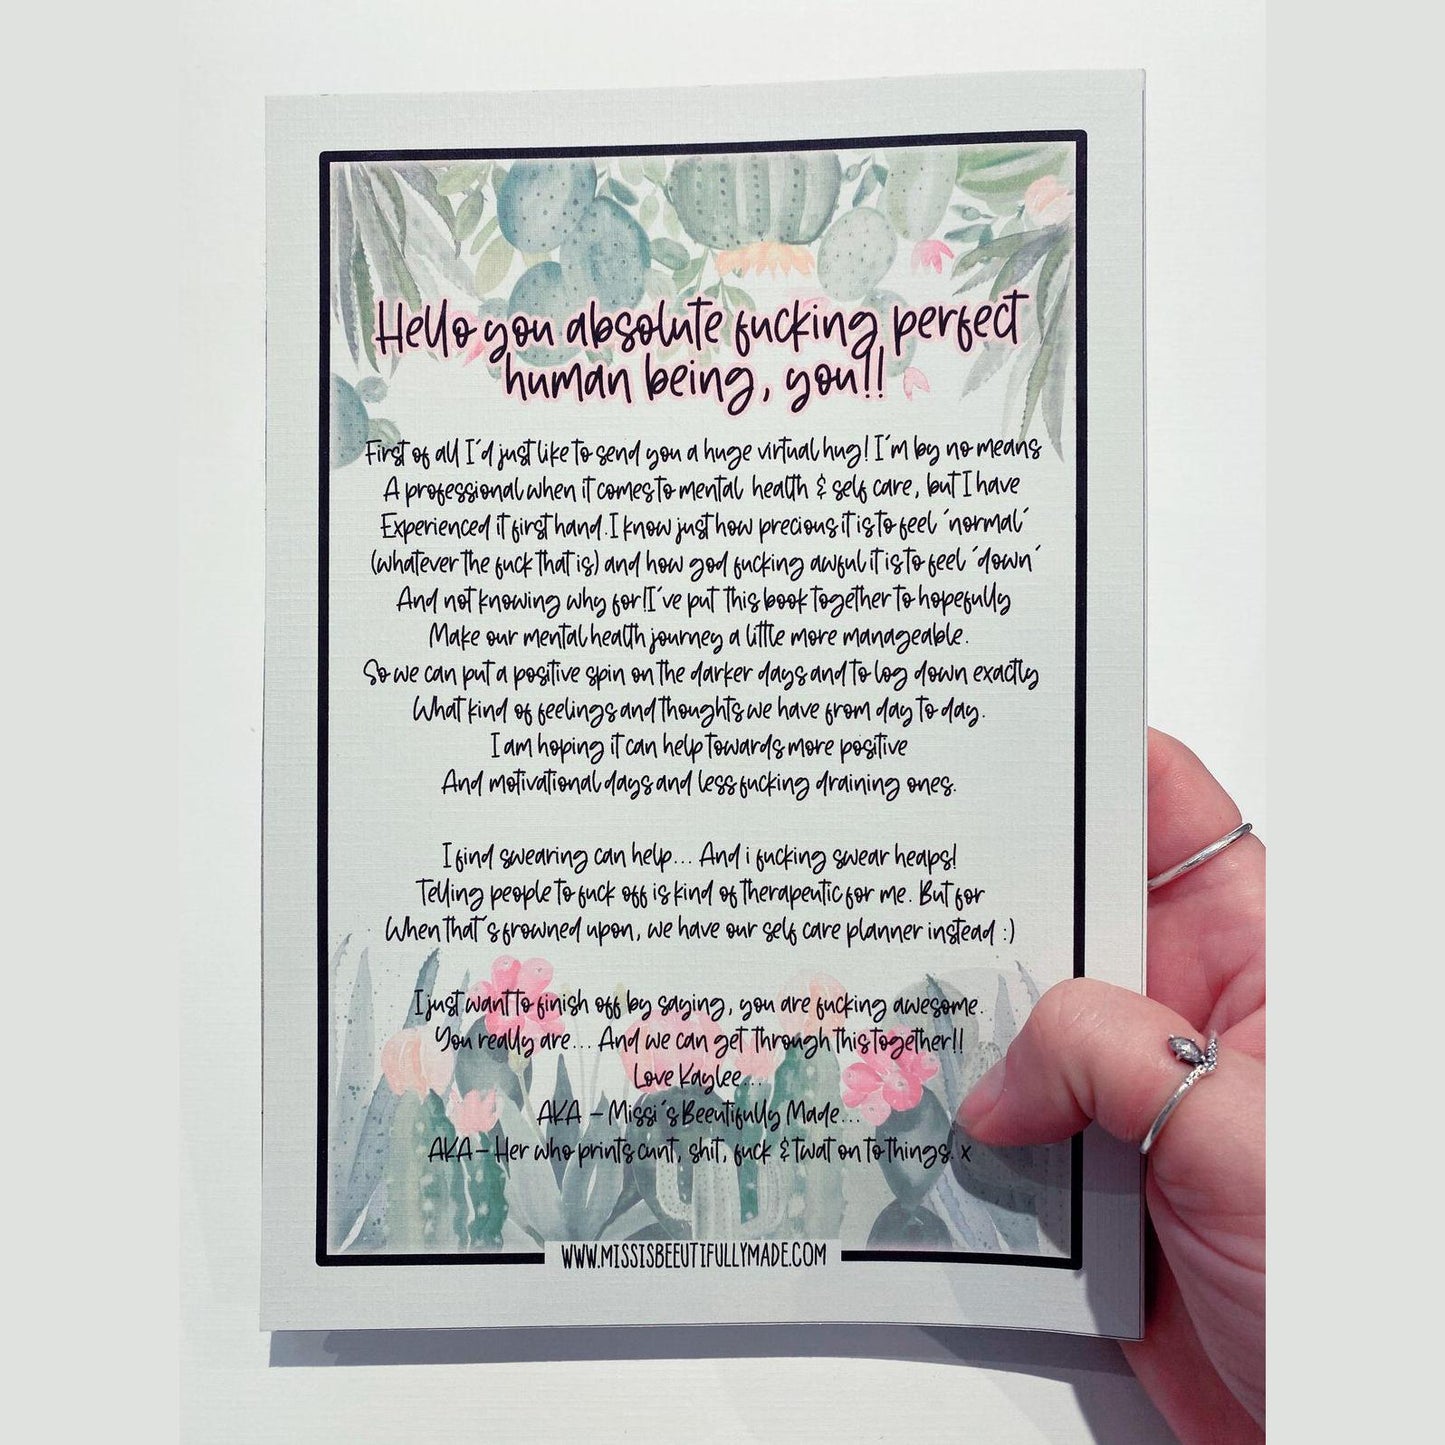 Hello you absolute fucking perfect
human being, you!!
First of all I'd just like to send you a huge virtual hug! I'm by no means
A professional when it comes to mental health & self care, but I have
Experienced it first hand. I know just how precious it is to feel 'normal'
(whatever the fuck that is) and how god fucking awful it is to feel 'down'
And not knowing why for! I've put this book together to hopefully
Make our mental health journey a little more manageable.
So we can put a positive spin on the darker days and to log down exactly
What kind of feelings and thoughts we have from day to day.
I am hoping it can help towards more positive
And motivational days and less fucking draining ones.
I find swearing can help... And i fucking swear heaps!
Telling people to fuck off is kind of therapeutic for me. But for
When that's frowned upon, we have our self care planner instead :)
I just want to finish off by saying, you are fucking awesome.
You really are... And we can get through this together!!
Love Kaylee...
AKA - Missi's Beeutifully Made...
AKA - Her who prints cunt, shit, fuck & twat on to things. x
WWW.MISSISBEEUTIFULLYMADE.COM